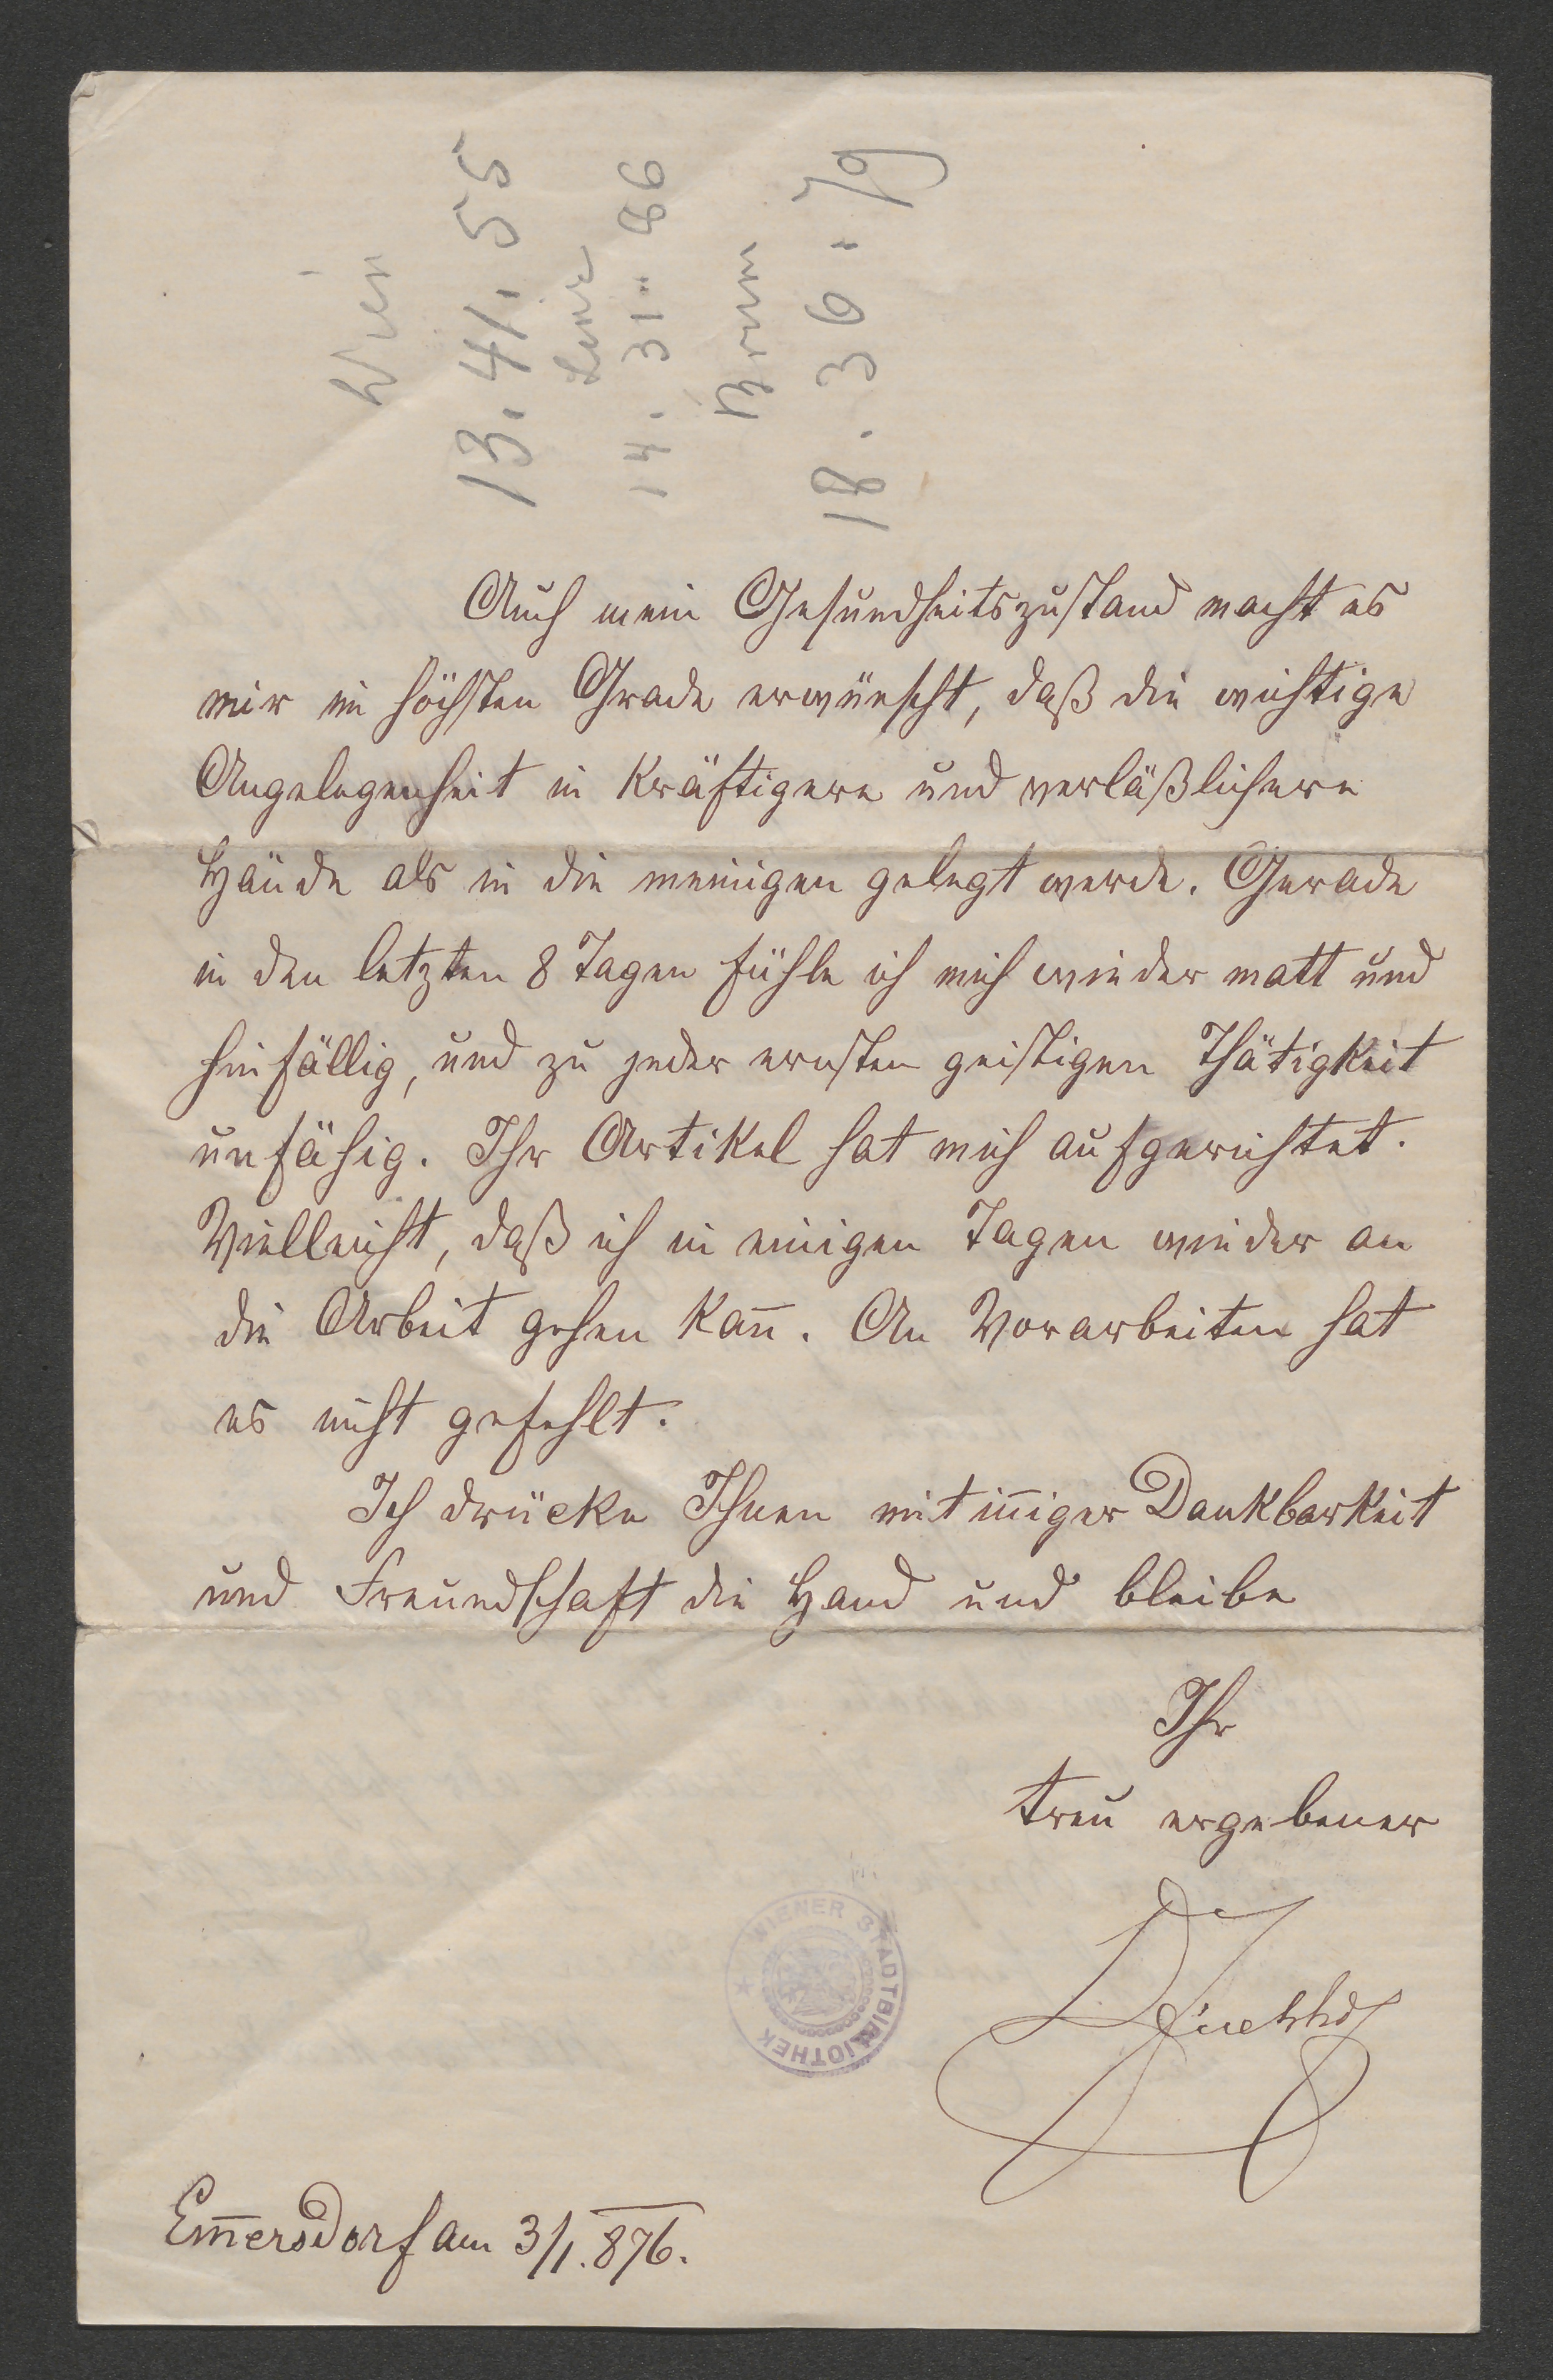 Wien
13. 41. 55
Linz
14. 31. 86
Brünn
18. 36. 79
Auch mein Gesundheitszustand macht es
mir im höchsten Grade erwünscht, daß die wichtige
Angelegenheit in kräftigere und verläßlichere
Hände als in die meinigen gelegt werde. Gerade
in den letzten 8 Tagen fühle ich mich wieder matt und
hinfällig, und zu jeder ernsten geistigen Thätigkeit
unfähig. Ihr Artikel hat mich aufgerichtet.
Vielleicht, daß ich in einigen Tagen wieder an
die Arbeit gehen kan̄. An Vorarbeiten hat
es nicht gefehlt.
Ich drücke Ihnen mit in̄iger Dankbarkeit
und Freundschaft die Hand und bleibe
Ihr
treu ergebener
WIENER STADTBIBLIOTHEK
Em̄ersdorf am 3/1. 876.